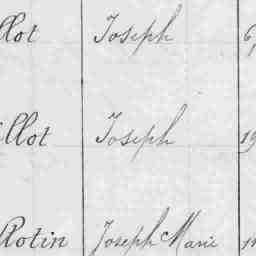 llot Joseph 6
illot Joseph 19
Rotin Joseph Marie